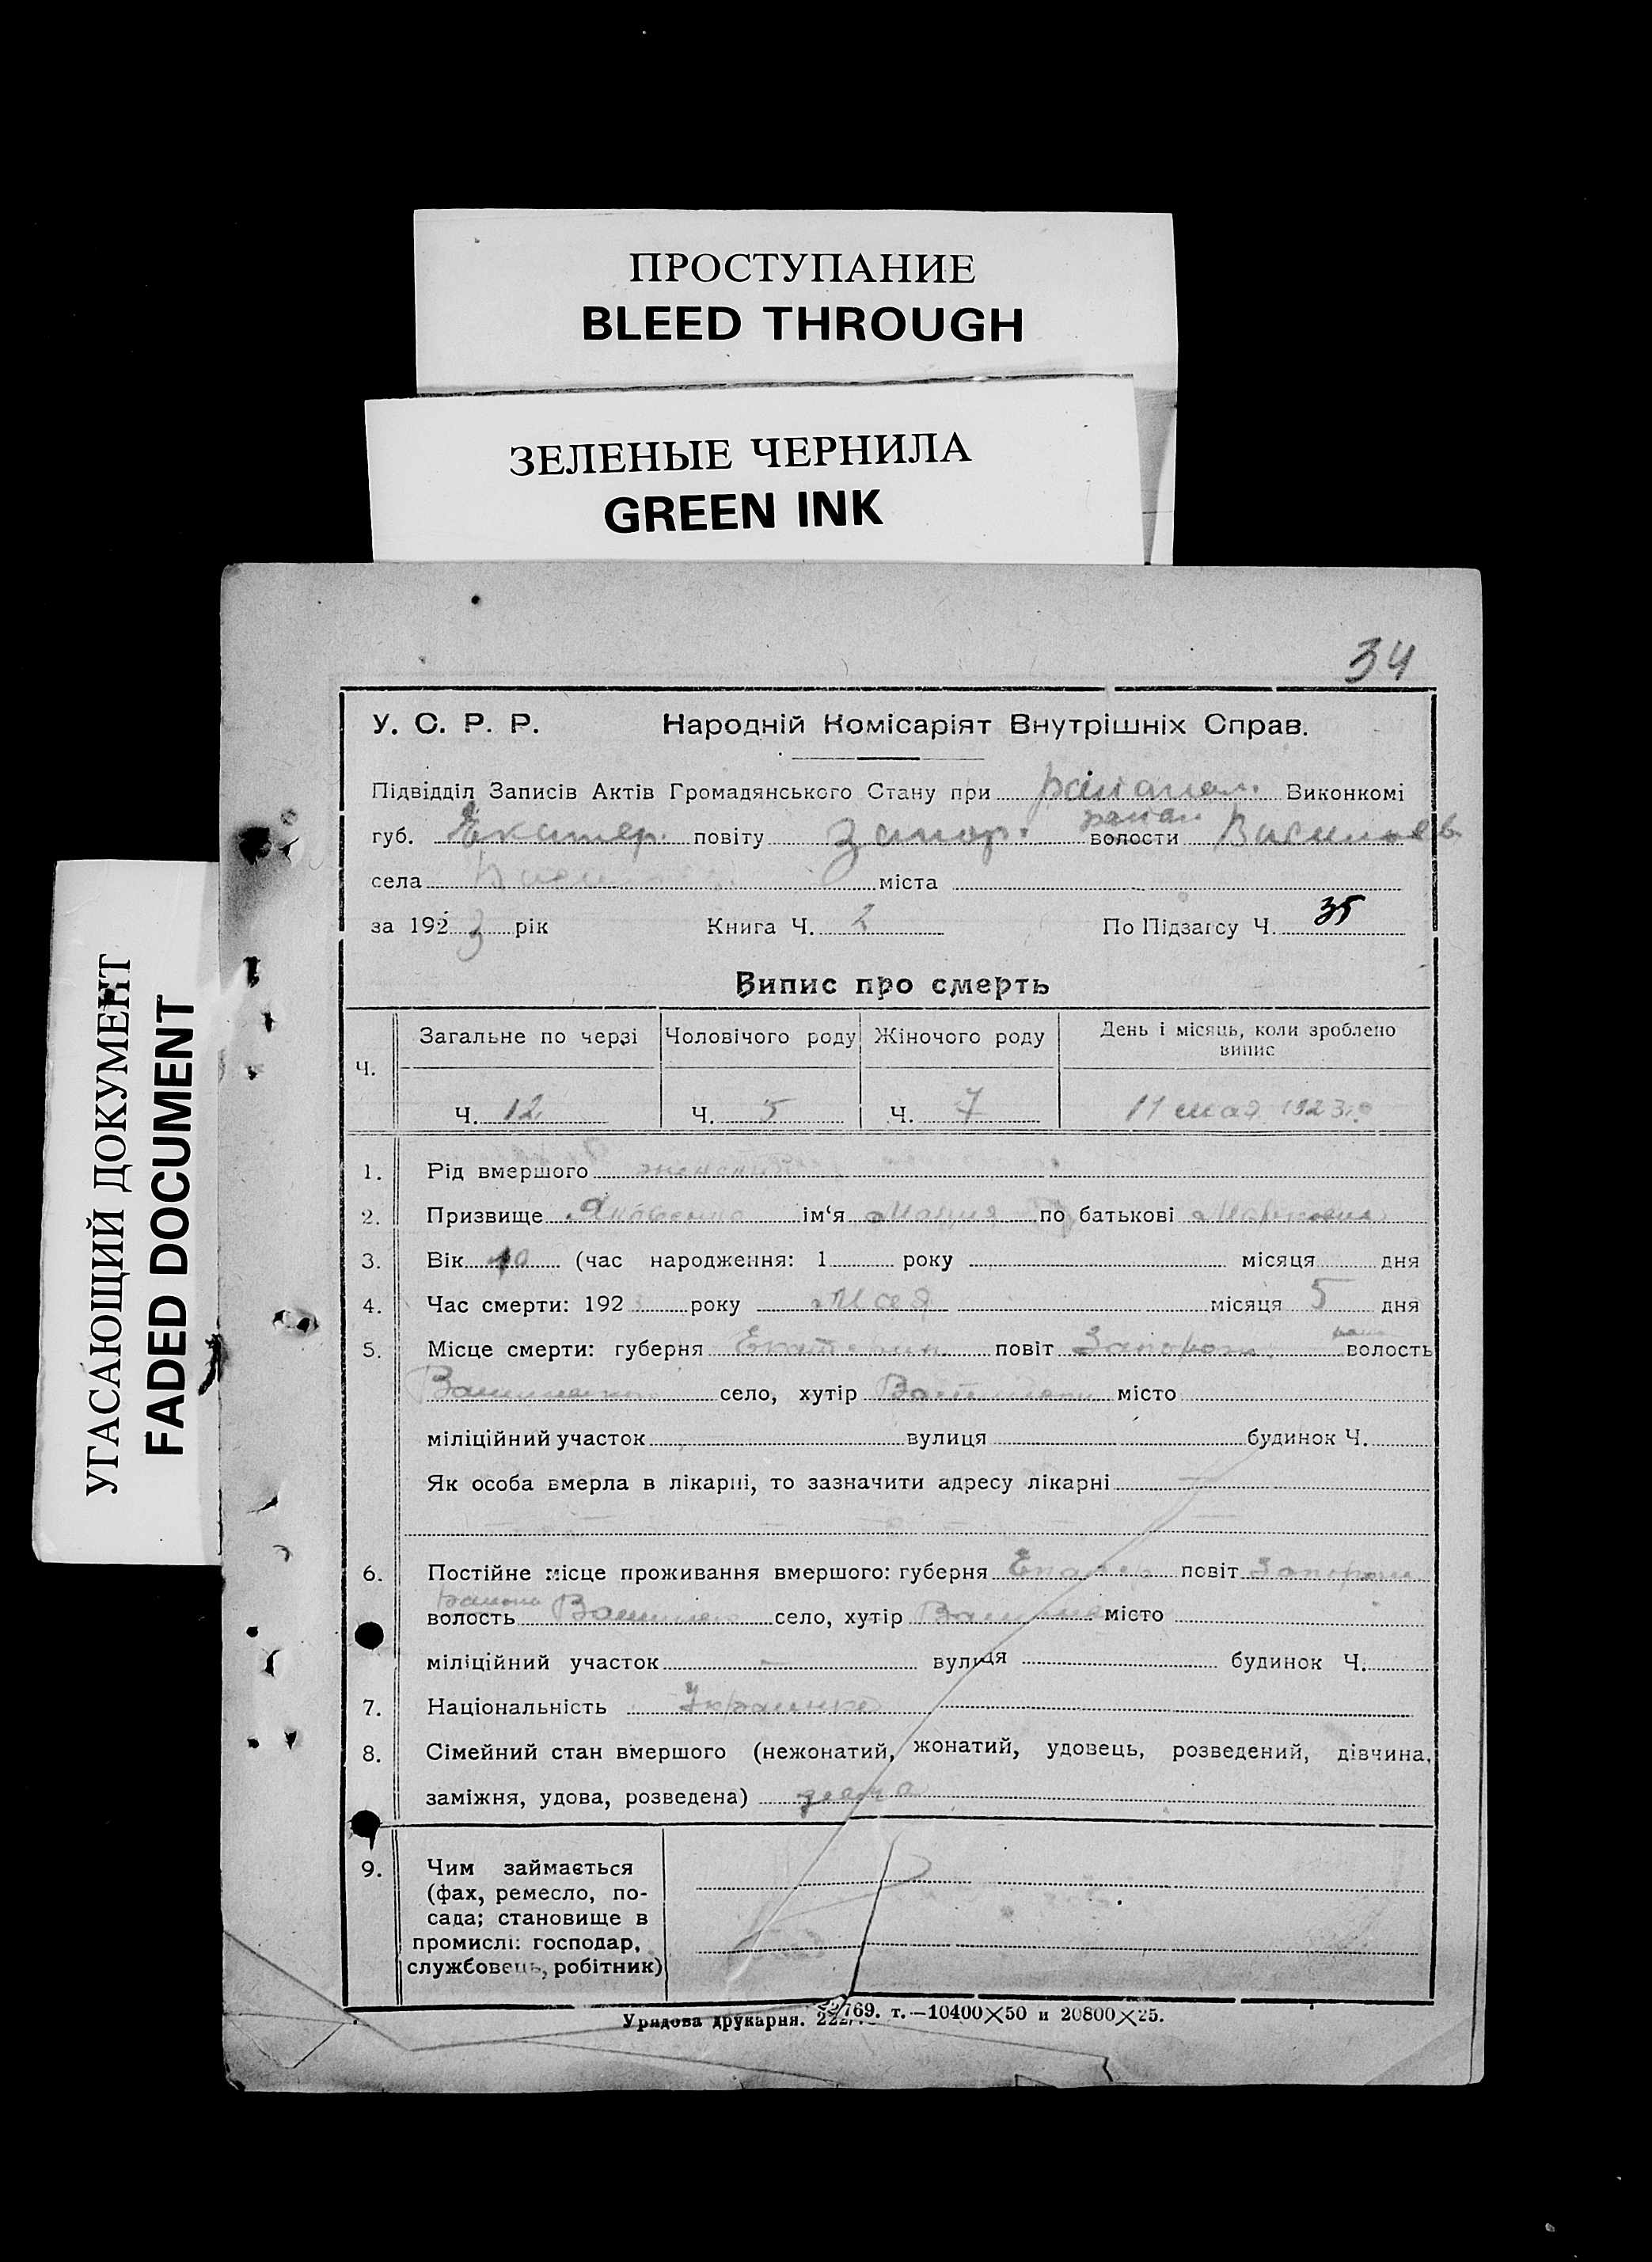 ПРОСТУПАНИЕ
BLEED THROUGH
ЗЕЛЕНЫЕ ЧЕРНИЛА
GREEN INK
УГАСАЮЩИЙ ДОКУМЕНТ
FADED DOCUMENT
34
У. С. Р. Р. Народній Комісаріят Внутрішніх Справ.
Підвідділ Записів Актів Громадянського Стану при Виконкомі
губ. Екатер. повіту Запор. волости район Васильев
села міста
за 1923 рік Книга Ч. 2 По Підзагсу Ч. 35
Випис про смерть
Ч. Загальне по черзі Чоловічого роду Жіночого роду День і місяць, коли зроблено випис
Ч. 12 Ч. 5 Ч. 7 11 мая 1923 г.
1. Рід вмершого женский
2. Призвище Яковенко ім‘я Мария по батькові Марковна
3. Вік (час народження: 1 року місяця дня
4. Час смерти: 192 року Мая місяця 5 дня
5. Місце смерти: губерня Екатерин. повіт Запорож. волость
село, хутір місто
міліційний участок вулиця будинок Ч.
Як особа вмерла в лікарні, то зазначити адресу лікарні
6. Постійне місце проживання вмершого: губерня Екатер повіт Запорож
волость район село, хутір місто
міліційний участок — вулиця будинок Ч.
7. Національність Украинка
8. Сімейний стан вмершого (нежонатий, жонатий, удовець, розведений, дівчина,
заміжня, удова, розведена)
9. Чим займається
(фах, ремесло, по-
сада; становище в
промислі: господар,
службовець, робітник)
Урядова друкарня. 22769. т.—10400×50 и 20800×25.